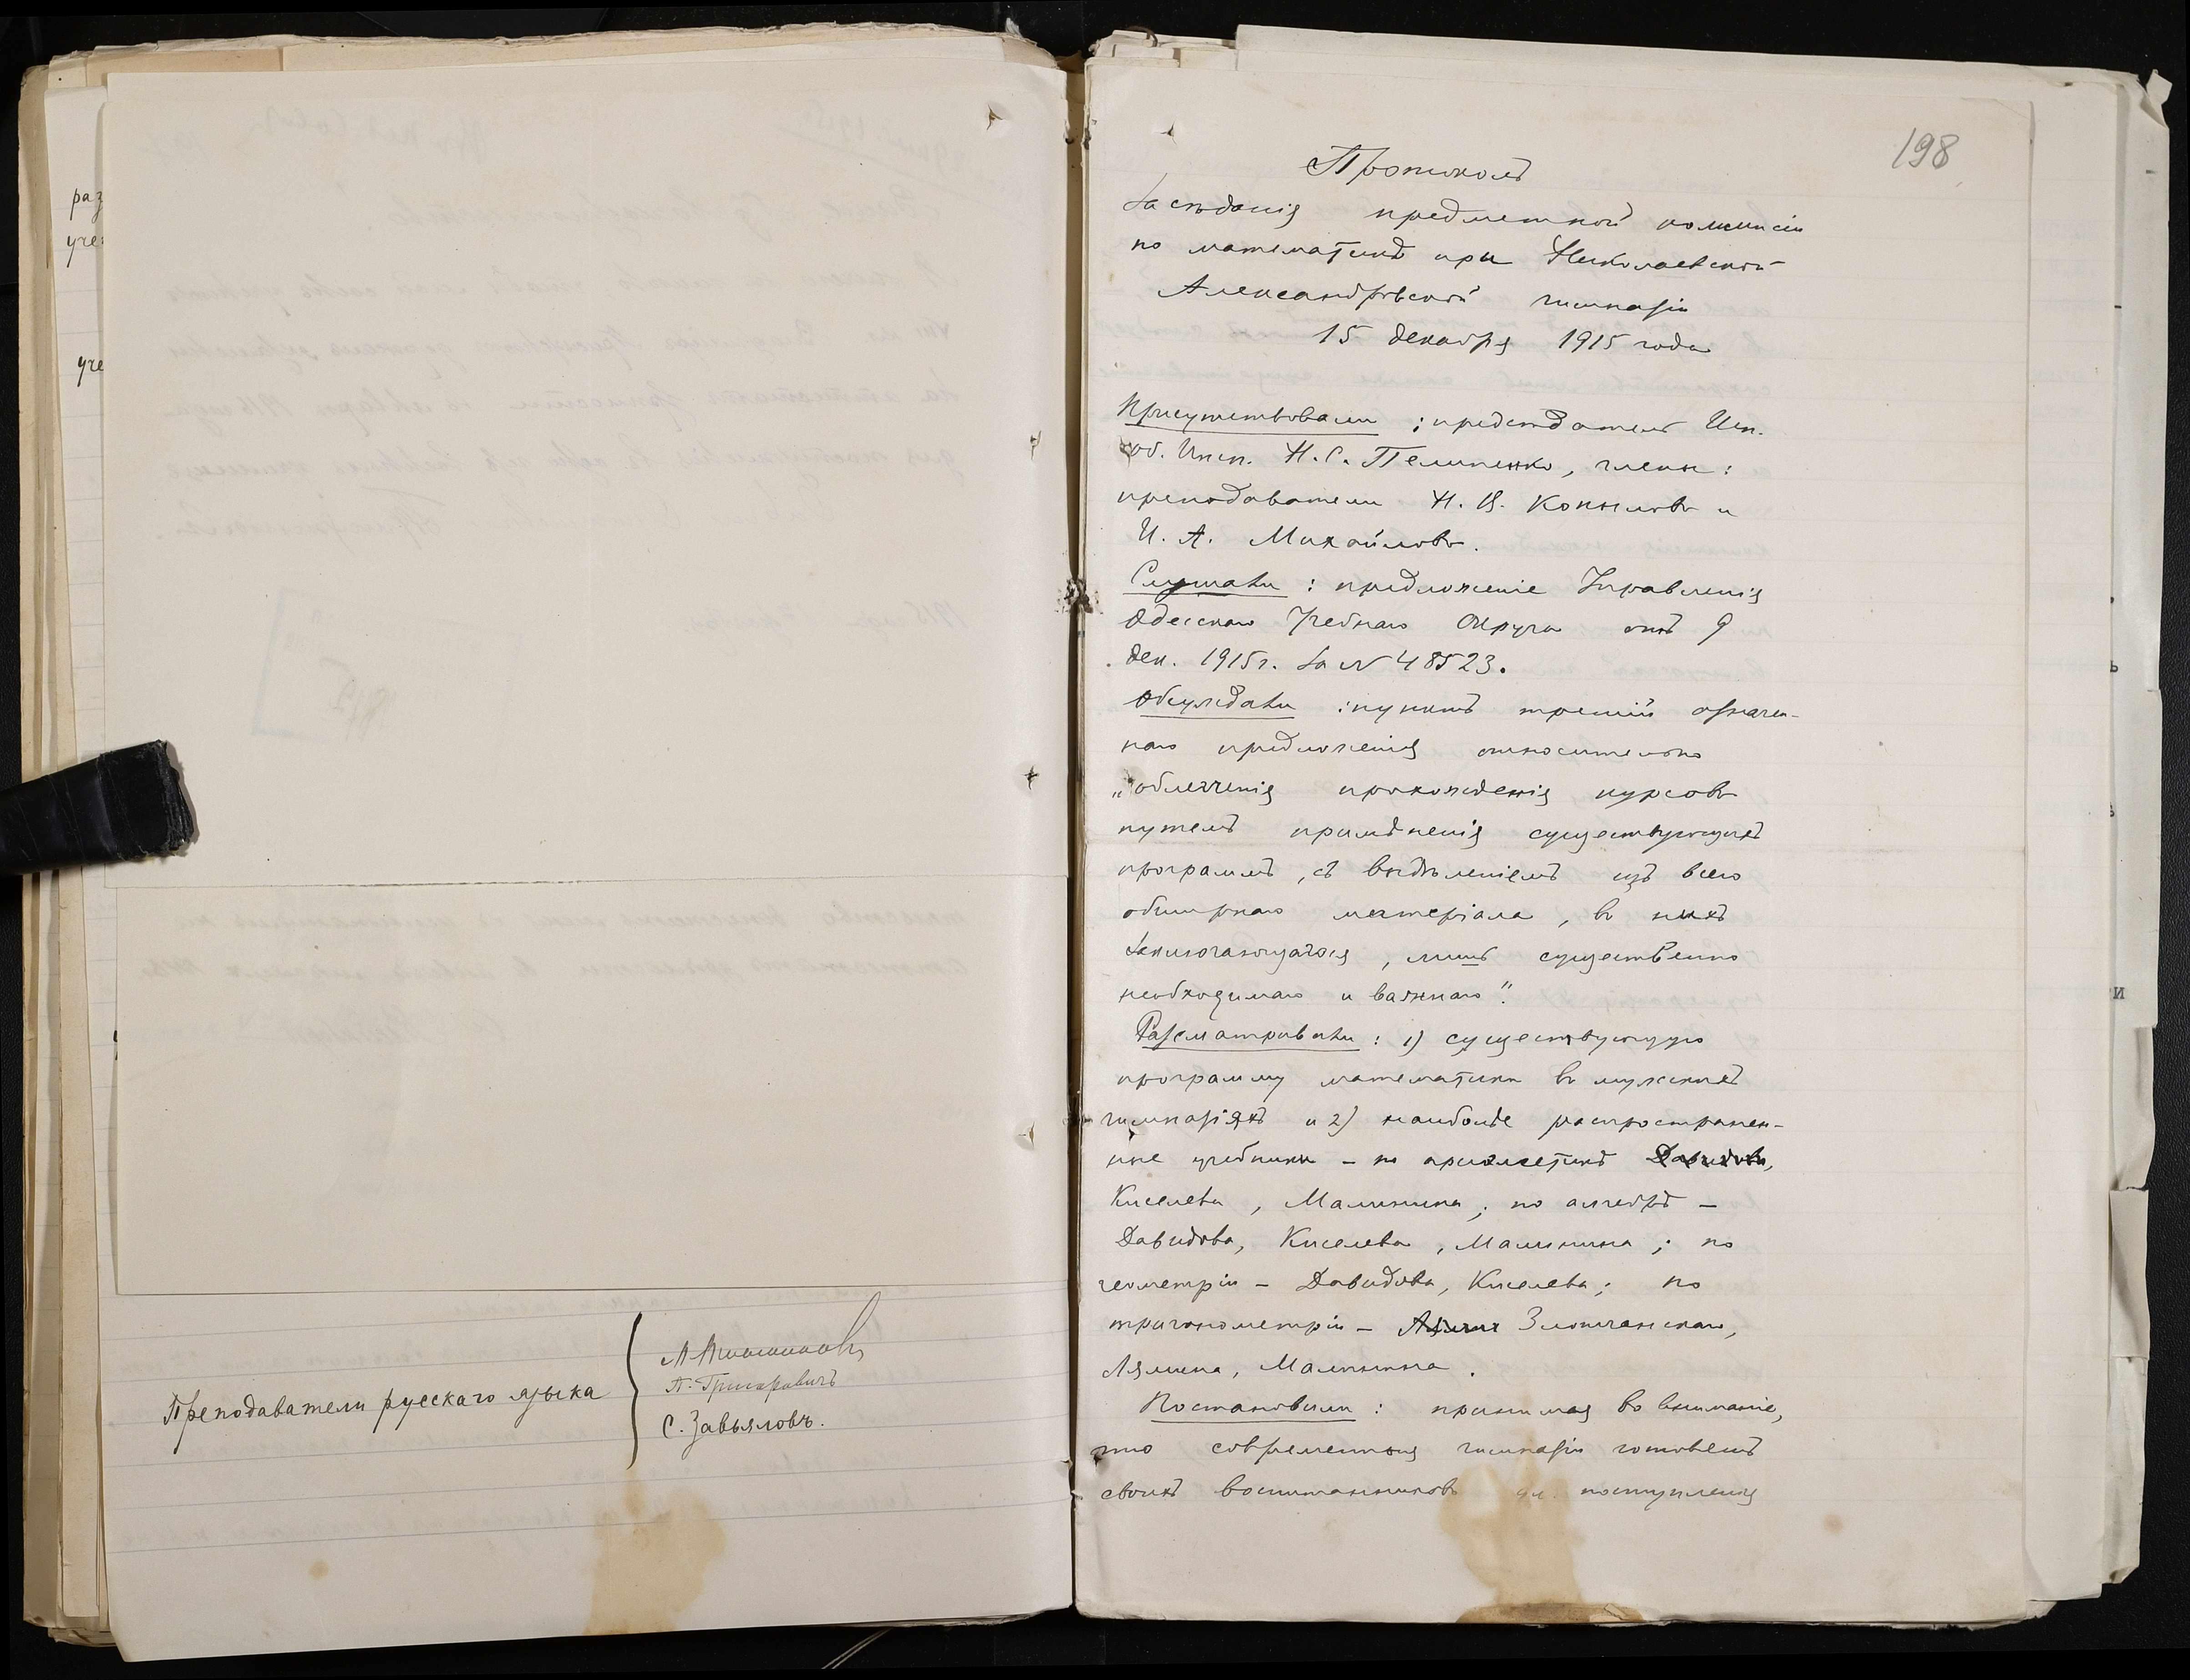 раз
уче
уче
Преподаватели русскаго языка
А. Григоровичъ
С. Завьяловъ.
198
Протоколъ
Засѣданія предметной комиссіи
по математикѣ при Николаевской
Александровской гимназіи
15 декабря 1915 года
Присутствовали: председатель Исп.
об. Инсп. Н. С. Пелипенко, члены:
преподаватели Н. В. Копыловъ и
И. А. Михайловъ.
Слушали: предложеніе Управленія
Одесскаго Учебнаго Округа отъ 9
дек. 1915 г. за № 48523.
Обсуждали: пунктъ третій означен-
наго предложенія относительно
„облегченія прохожденія курсовъ
путемъ примѣненія существующихъ
программъ, съ выдѣленіемъ изъ всего
обширнаго матеріала, въ нихъ
заключающагося, лишь существенно
необходимаго и важнаго".
Разсматривали: 1) существующую
программу математики въ мужскихъ
гимназіяхъ и 2) наиболѣе распространен-
ные учебники – по ариѳметикѣ Давидова,
Киселева, Малинина; по алгебрѣ –
Давидова, Киселева, Малинина; по
геометріи – Давидова, Киселева; по
тригонометріи – Злотчанскаго,
Лямина, Малинина.
Постановили: принимая во вниманіе,
что современная гимназія готовитъ
своихъ воспитанниковъ для поступленія